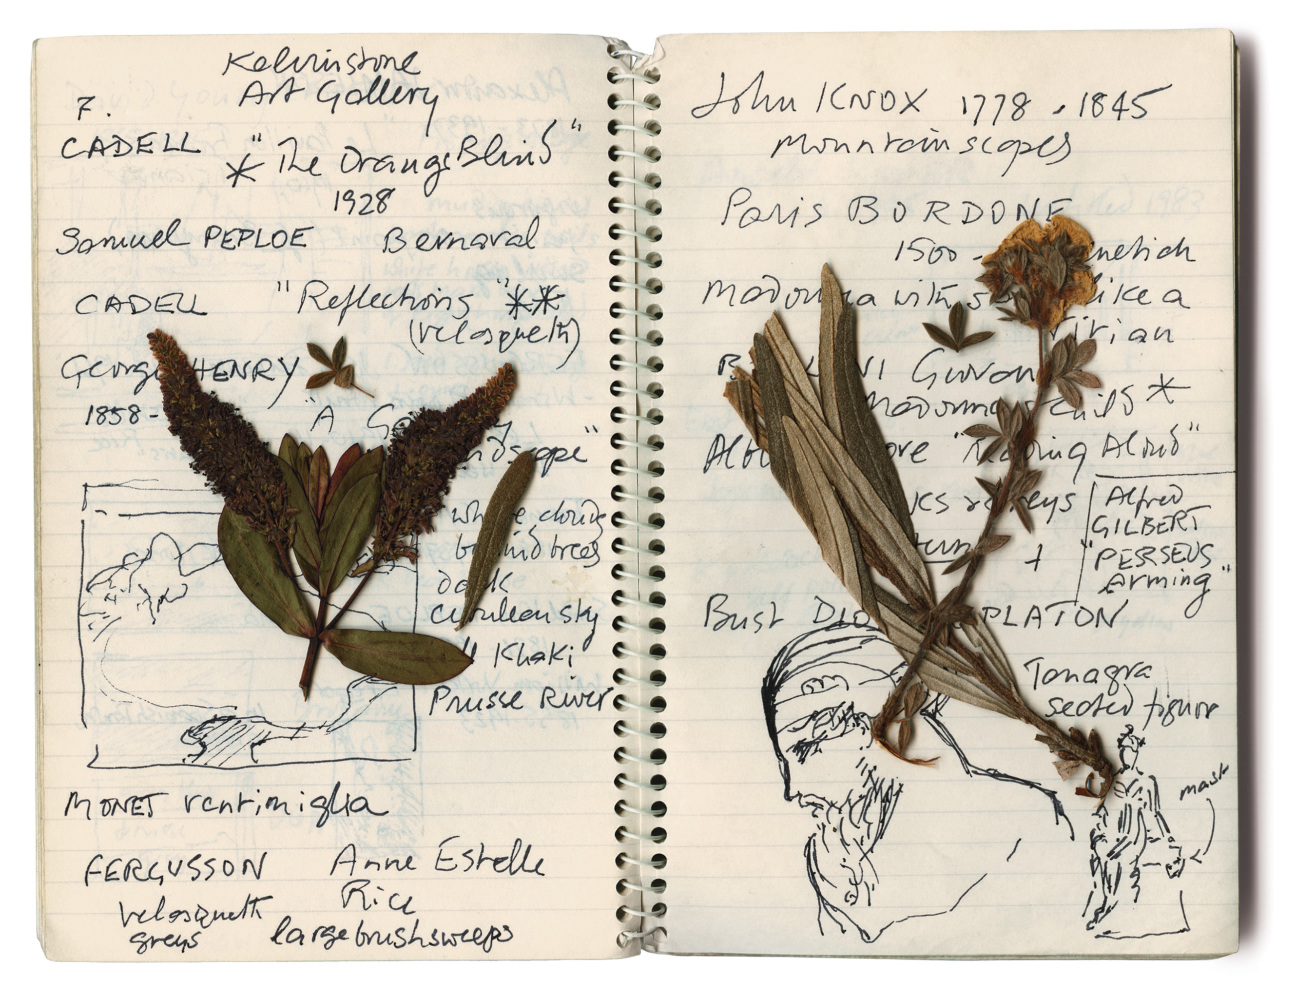 Kelvinstone
Art Gallery
F.
CADELL
* "The Orange Blind"
1928
Samuel PEPLOE Bernaval
CADELL "Reflections" **
(velasqueth)
George HENRY
1858-
"A G
ndscape"
white clouds
behind trees
dark
cerulean sky
" Khaki
Prusse River
MONET ventimiglia
FERGUSSON Anne Estelle
Rice
velasqueth
greys
large brushsweeps
John KNOX 1778 - 1845
Mountainscapes
Paris BORDONE
1500 - netian
Madonna with s like a
Titian
B INI Giovan
Madonna & child *
Alb ore "Reading Aloud"
+
Alfred
GILBERT
"PERSEUS
Arming"
Bust DIO PLATON
Tanagra
seated figure
mask